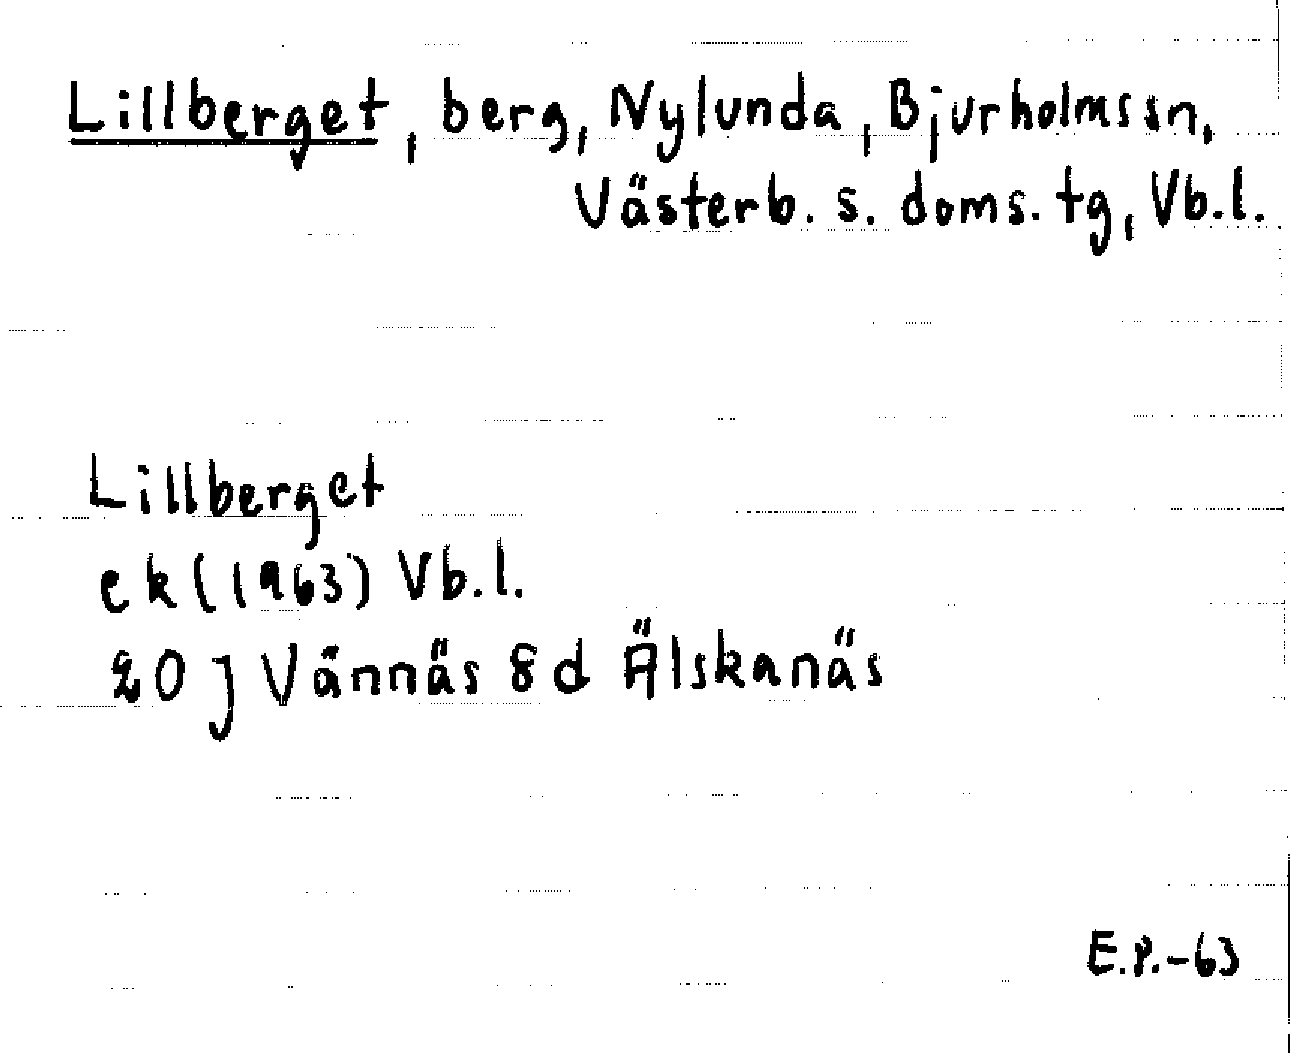 Lillberget, berg, Nylunda, Bjurholms sn,
Västerb. s. doms. tg, Vb.l.
Lillberget
ek (1963) Vb.l.
20 J Vännäs 8d Älskanäs
E.P.-63